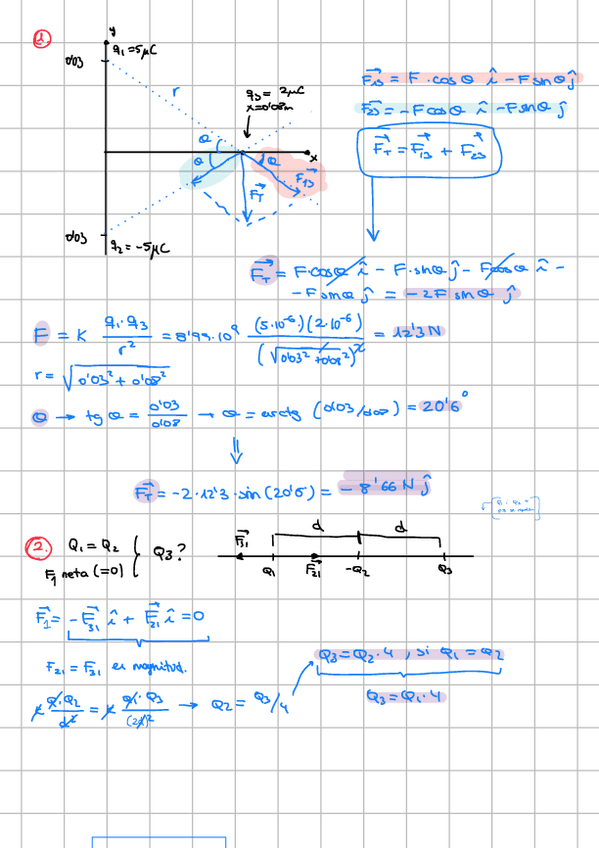 1.
y
q₁ = 5μC
0'03
r
q₃ = 2μC
x = 0'08m
θ
θ
θ
x
F₁₃
F_T
0'03
q₂ = -5μC
F₁₃ = F · cos θ î - F sin θ ĵ
F₂₃ = -F cos θ î - F sin θ ĵ
F_T = F₁₃ + F₂₃
F_T = F·cos θ î - F·sin θ ĵ - F cos θ î -
- F sin θ ĵ = -2F sin θ ĵ
F = K q₁·q₃ / r² = 8'99·10⁹ (5·10⁻⁶)(2·10⁻⁶) / (√0'03² + 0'08²)² = 12'3 N
r = √0'03² + 0'08²
θ → tg θ = 0'03 / 0'08 → θ = arctg (0'03/0'08) = 20'6°
⇓
F_T = -2·12'3·sin(20'6) = -8'66 N ĵ
2.
Q₁ = Q₂
F₁ neta (=0)
Q₃?
d
d
F₃₁
Q₁
F₂₁
-Q₂
Q₃
F₁ = -F₃₁ î + F₂₁ î = 0
F₂₁ = F₃₁ en magnitud.
K Q₁·Q₂ / d² = K Q₁·Q₃ / (2d)² → Q₂ = Q₃/4
Q₃ = Q₂·4, si Q₁ = Q₂
Q₃ = Q₁·4